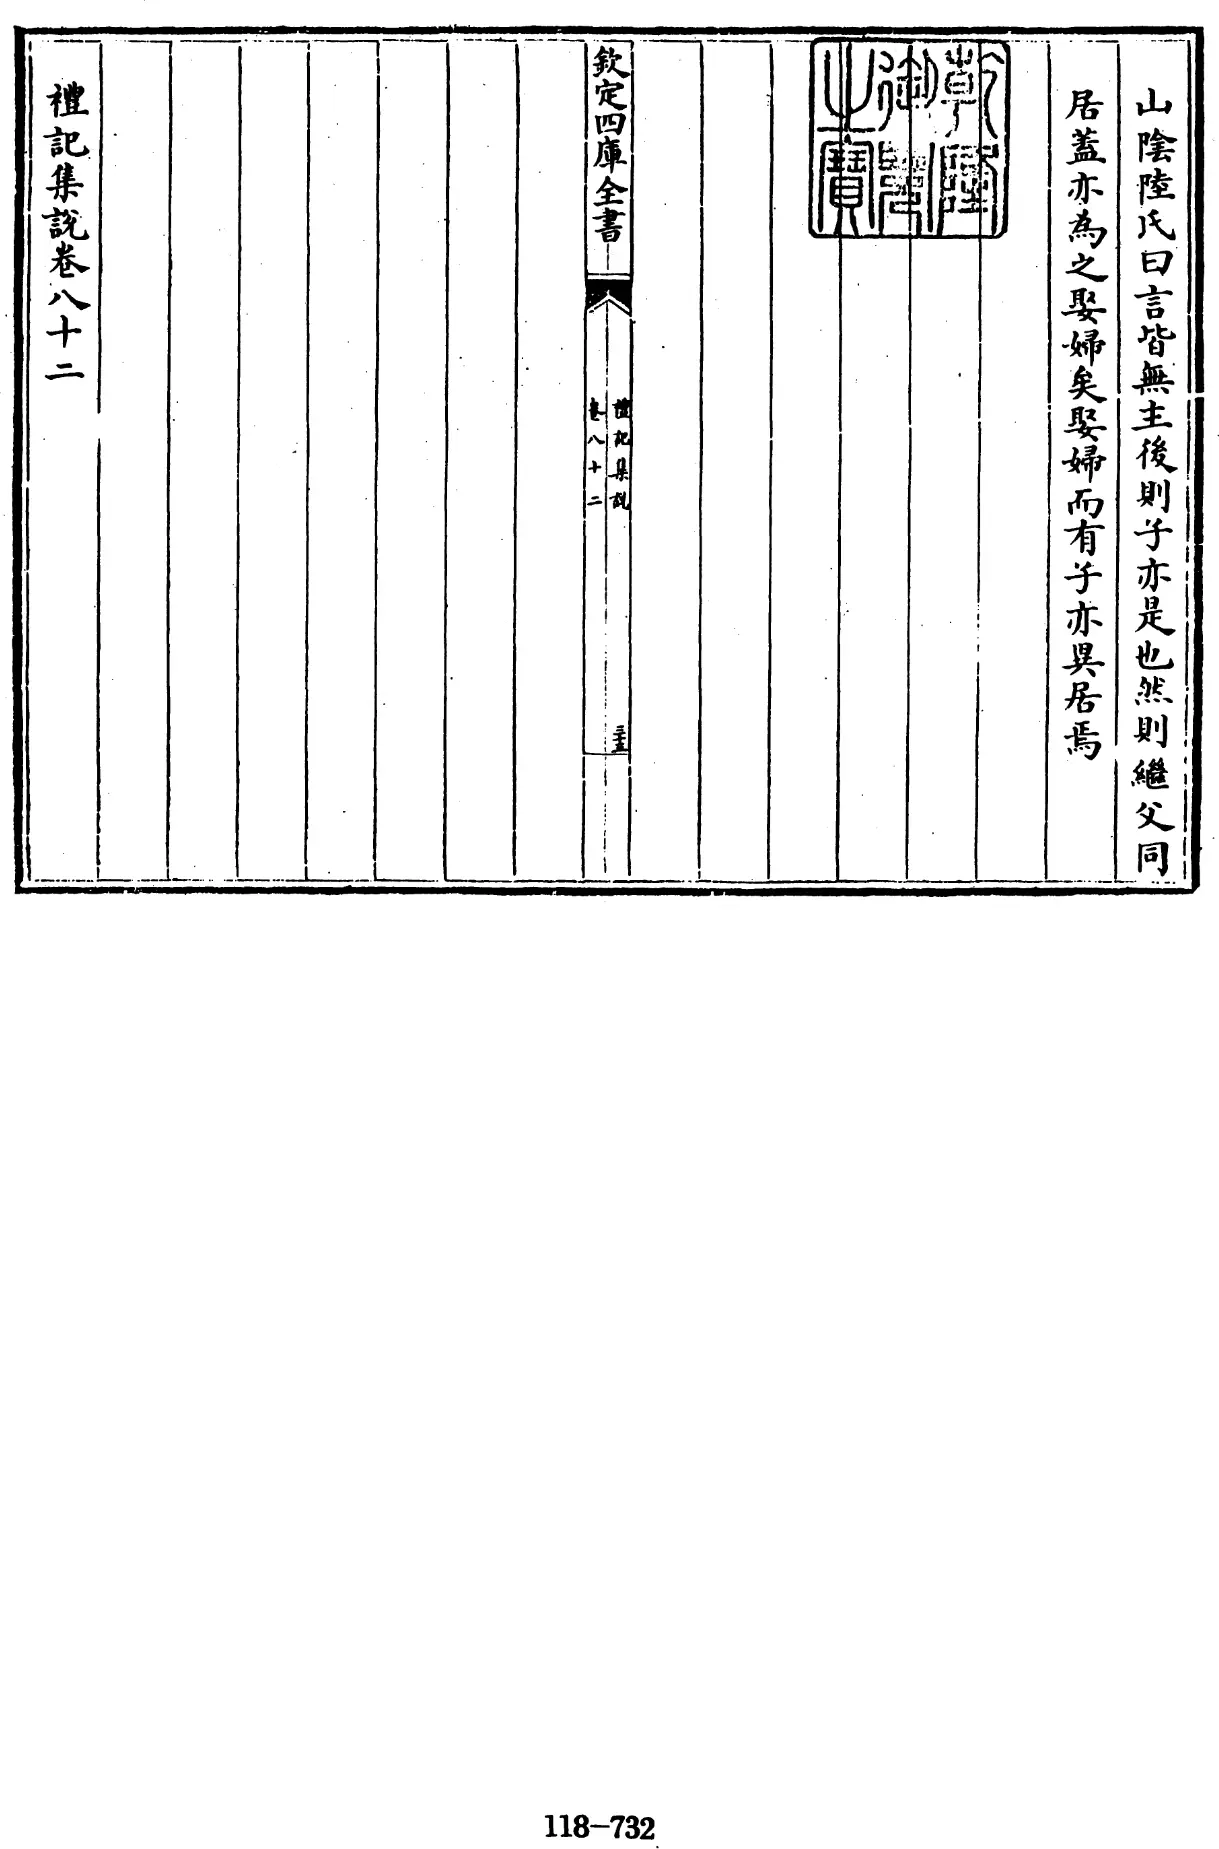 山陰陸氏曰言皆無主後則子亦是也然則繼父同
居蓋亦為之娶婦矣娶婦而有子亦異居焉
乾隆
御覽
之寶
欽定四庫全書
禮記集說
卷八十二
三十五
禮記集說卷八十二
118-732